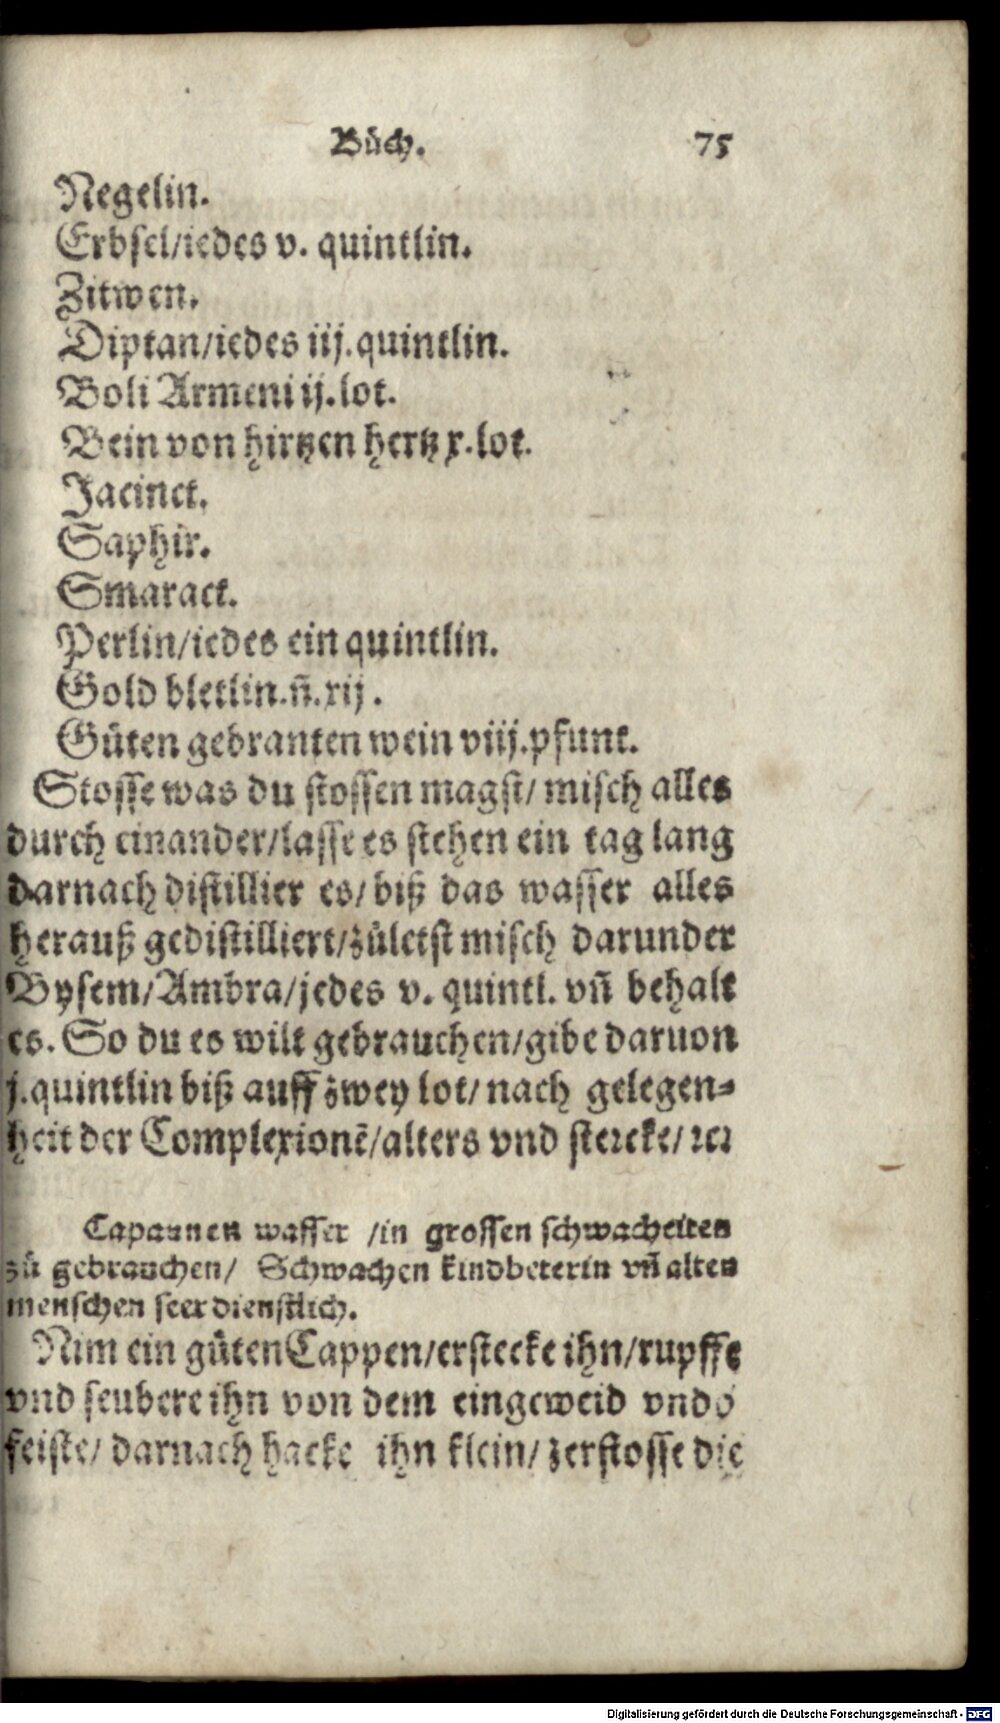 Bůch. 75
Negelin.
Erbsel/iedes v. quintlin.
Zitwen.
Diptan/iedes iij. quintlin.
Boli Armeni ij. lot.
Bein von hirtzen hertz x. lot.
Jacinct.
Saphir.
Smaract.
Perlin/iedes ein quintlin.
Gold bletlin. n̄. xij.
Gůten gebranten wein viij. pfunt.
Stosse was du stossen magst/ misch alles
durch einander/lasse es stehen ein tag lang
darnach distillier es/ biß das wasser alles
herauß gedistilliert/zůletst misch darunder
Bysem/Ambra/jedes v. quintl. vñ behalt
es. So du es wilt gebrauchen/gibe daruon
j. quintlin biß auff zwey lot/ nach gelegen⸗
heit der Complexionē/alters vnd stercke/ ꝛcꝛ
Capaunen wasser /in grossen schwacheiten
zů gebrauchen/ Schwachen kindbeterin vñ alten
menschen seer dienstlich.
Nim ein gůten Cappen/erstecke ihn/rupffe
vnd seubere ihn von dem eingeweid vnd ð
feiste/ darnach hacke ihn klein/ zerstosse die
Digitalisierung gefördert durch die Deutsche Forschungsgemeinschaft - DFG